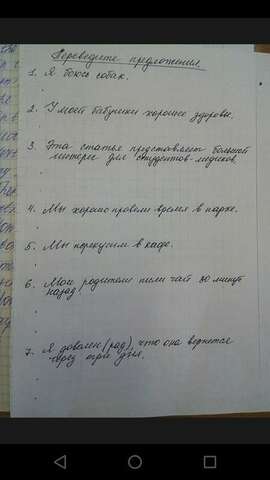 Переведите предложения.
1. Я боюсь собак.
2. У моей бабушки хорошее здоровье.
3. Эта статья представляет большой
интерес для студентов-медиков.
4. Мы хорошо провели время в парке.
5. Мы перекусим в кафе.
6. Мои родители пили чай 30 минут
назад.
7. Я доволен (рад), что она вернется
через три дня.